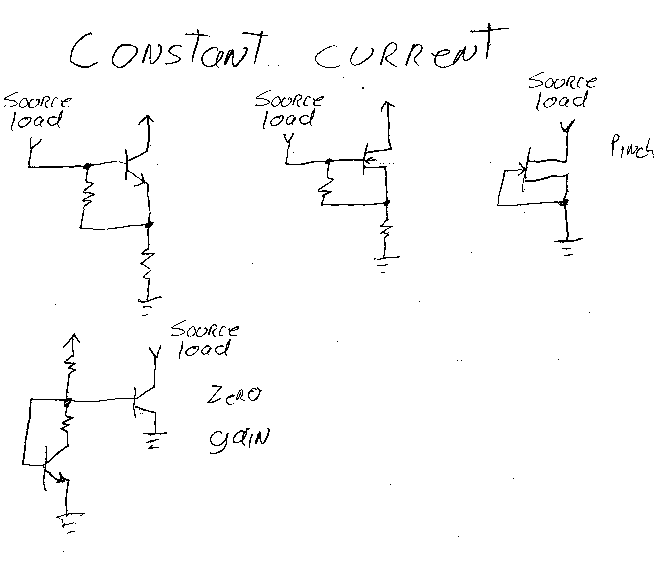 CONSTANT CURRENT
SOURCE
load
SOURCE
load
SOURCE
load
Pinch
SOURCE
load
ZERO
gAIN